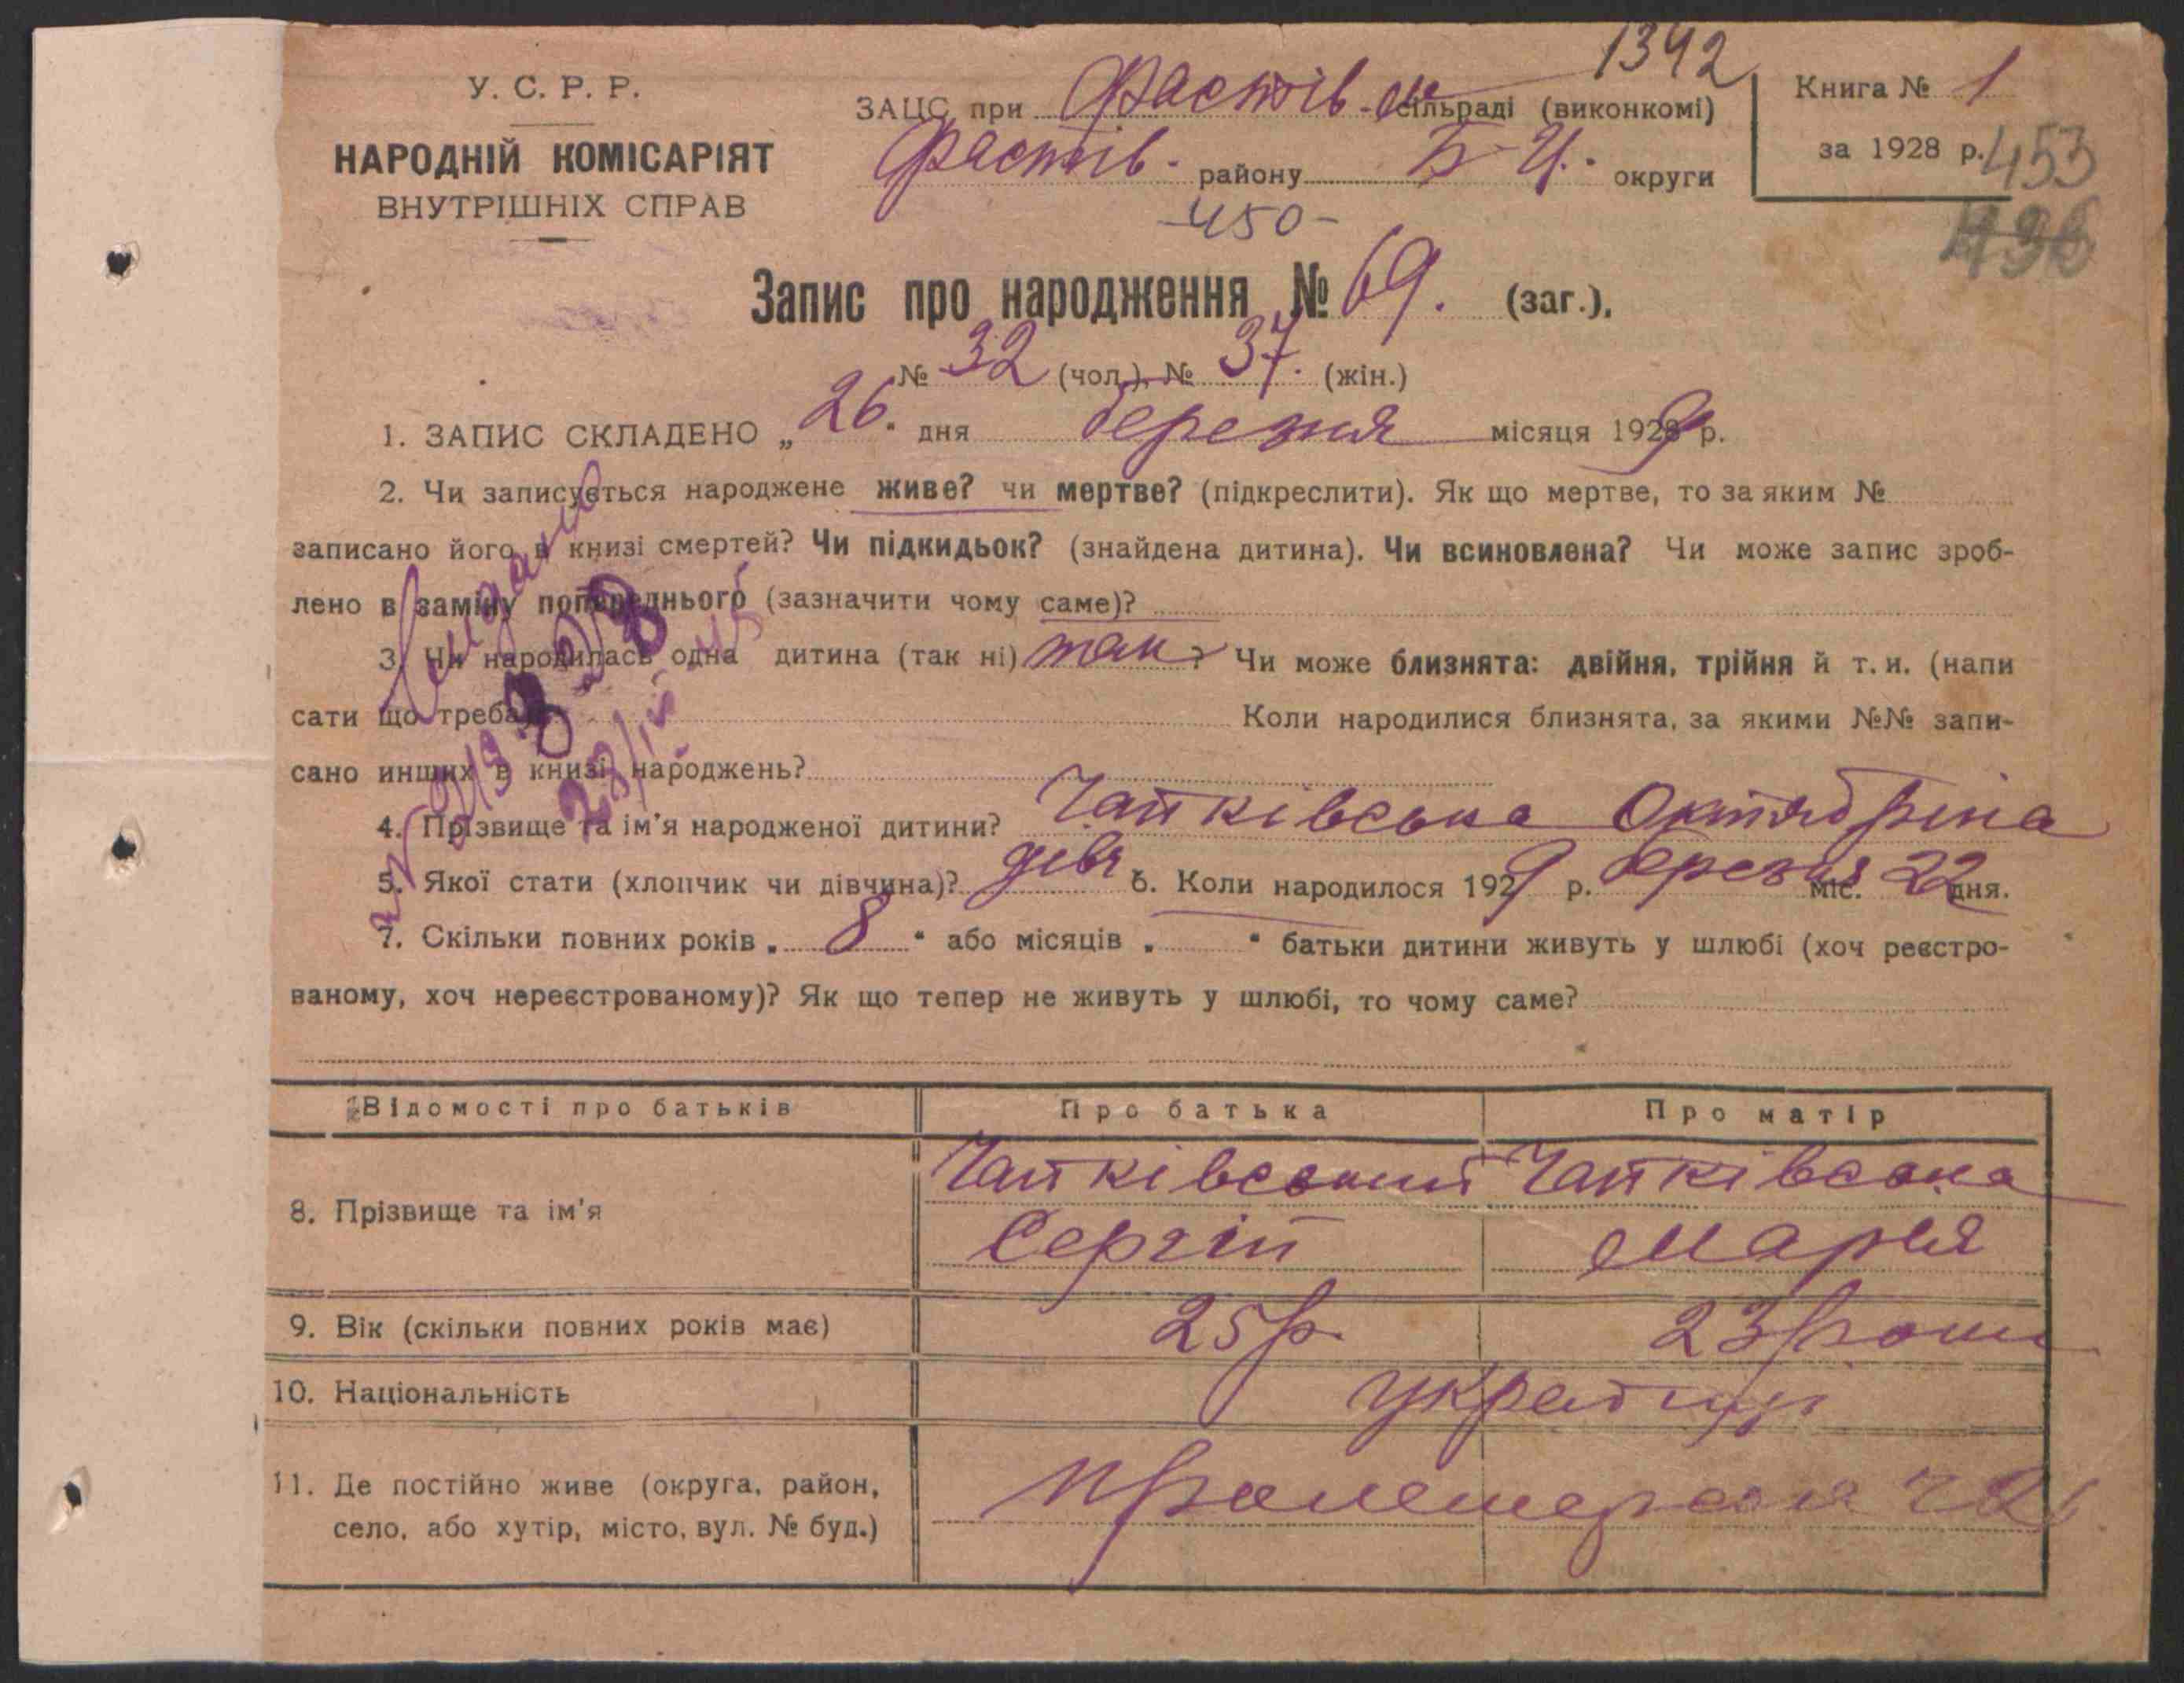 1342
У. С. Р. Р.
НАРОДНІЙ КОМІСАРІЯТ
ВНУТРІШНІХ СПРАВ
ЗАЦС при Фастів - м сільраді (виконкомі)
Фастів. району Б-Ц. округи
Книга № 1
за 1928 р.
453
436
-450-
Запис про народження № 69. (заг.),
№ 32 (чол.), № 37. (жін.)
1. ЗАПИС СКЛАДЕНО „ 26 " дня березня місяця 1929 р.
2. Чи записується народжене живе? чи мертве? (підкреслити). Як що мертве, то за яким №
записано його в книзі смертей? Чи підкидьок? (знайдена дитина). Чи всиновлена? Чи може запис зроб-
лено в заміну попереднього (зазначити чому саме)?
3. Чи народилась одна дитина (так ні) так ? Чи може близнята: двійня, трійня й т. и. (напи
сати що треба)
Коли народилися близнята, за якими №№ запи-
сано инших в книзі народжень?
4. Прізвище та ім'я народженої дитини? Чапківська Октябріна
5. Якої стати (хлопчик чи дівчина)? дівч 6. Коли народилося 1929 р. березня міс. 22 дня.
7. Скільки повних років „ 8 " або місяців „ " батьки дитини живуть у шлюбі (хоч реєстро-
ваному, хоч нереєстрованому)? Як що тепер не живуть у шлюбі, то чому саме?
Відомості про батьків
Про батька
Про матір
8. Прізвище та ім'я
Чапківський Чапківська
Сергій Марья
9. Вік (скільки повних років має)
25 р. 23 роки
10. Національність
українці
11. Де постійно живе (округа, район,
село, або хутір, місто, вул. № буд.)
Пролетарська